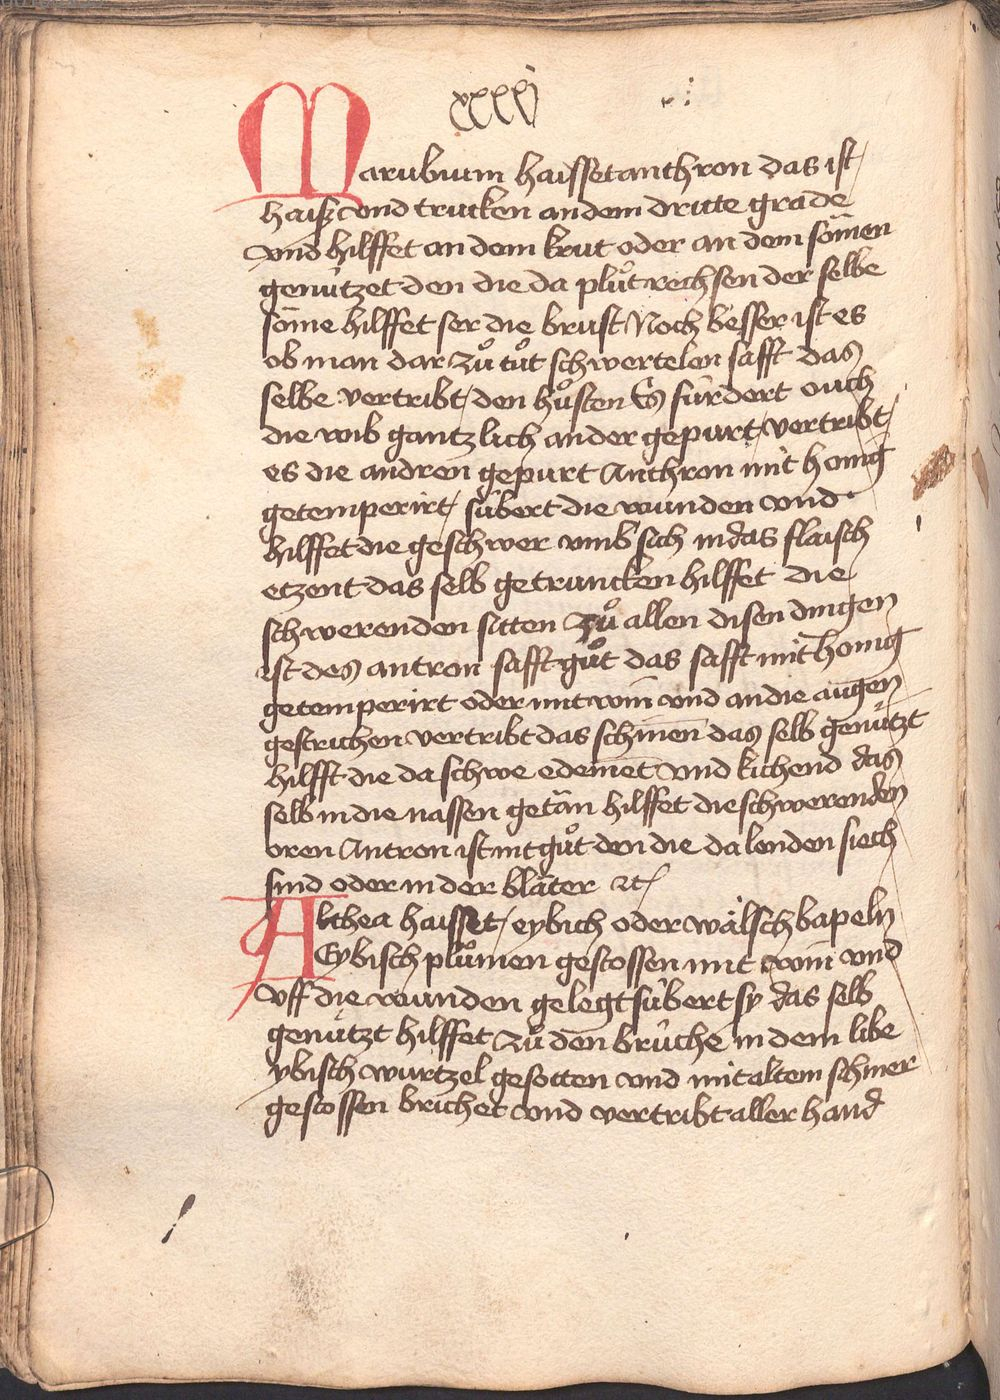 xxxxj
Marubium haisset anthron das ist
haiß vnd trucken an dem dritte grade
vnd hilffet an dem krut oder an dem sömen
genützet den die da plůt rechsen der selbe
söme hilffet ser die brust Noch besser ist es
ob man dar zů tůt schwertelen safft das
selbe vertribt den hůsten Es fürdert ouch
die wib gantzlich an der gepurt vertribt
es die andren gepurt Anthron mit honig
getemperirt sübert die wunden vnd
hilffet die geschwer vmb sich in das flaisch
etzent das selb getruncken hilffet die
schwerenden sitten Zů allen disen dingen
ist des antron safft gůt das safft mit honig
getemperirt oder mit win vnd an die augen
gestrichen vertribt das schinen das selb genützt
hilfft die da schwe edemet vnd kichend das
selb in die nassen getän hilffet die schwerenden
oren Antron ist nit gůt den die da lenden siech
sind oder in der bläter ꝛc
Althea haisset eybich oder wälsch bapeln
Eybisch plůmen gestossen mit win vnd
vff die wunden gelegt sübert sy das selb
genützt hilffet zů den brüche in dem libe
ybisch wurtzel gesotten vnd mit altem schmer
gestossen brichet vnd vertribt aller hand